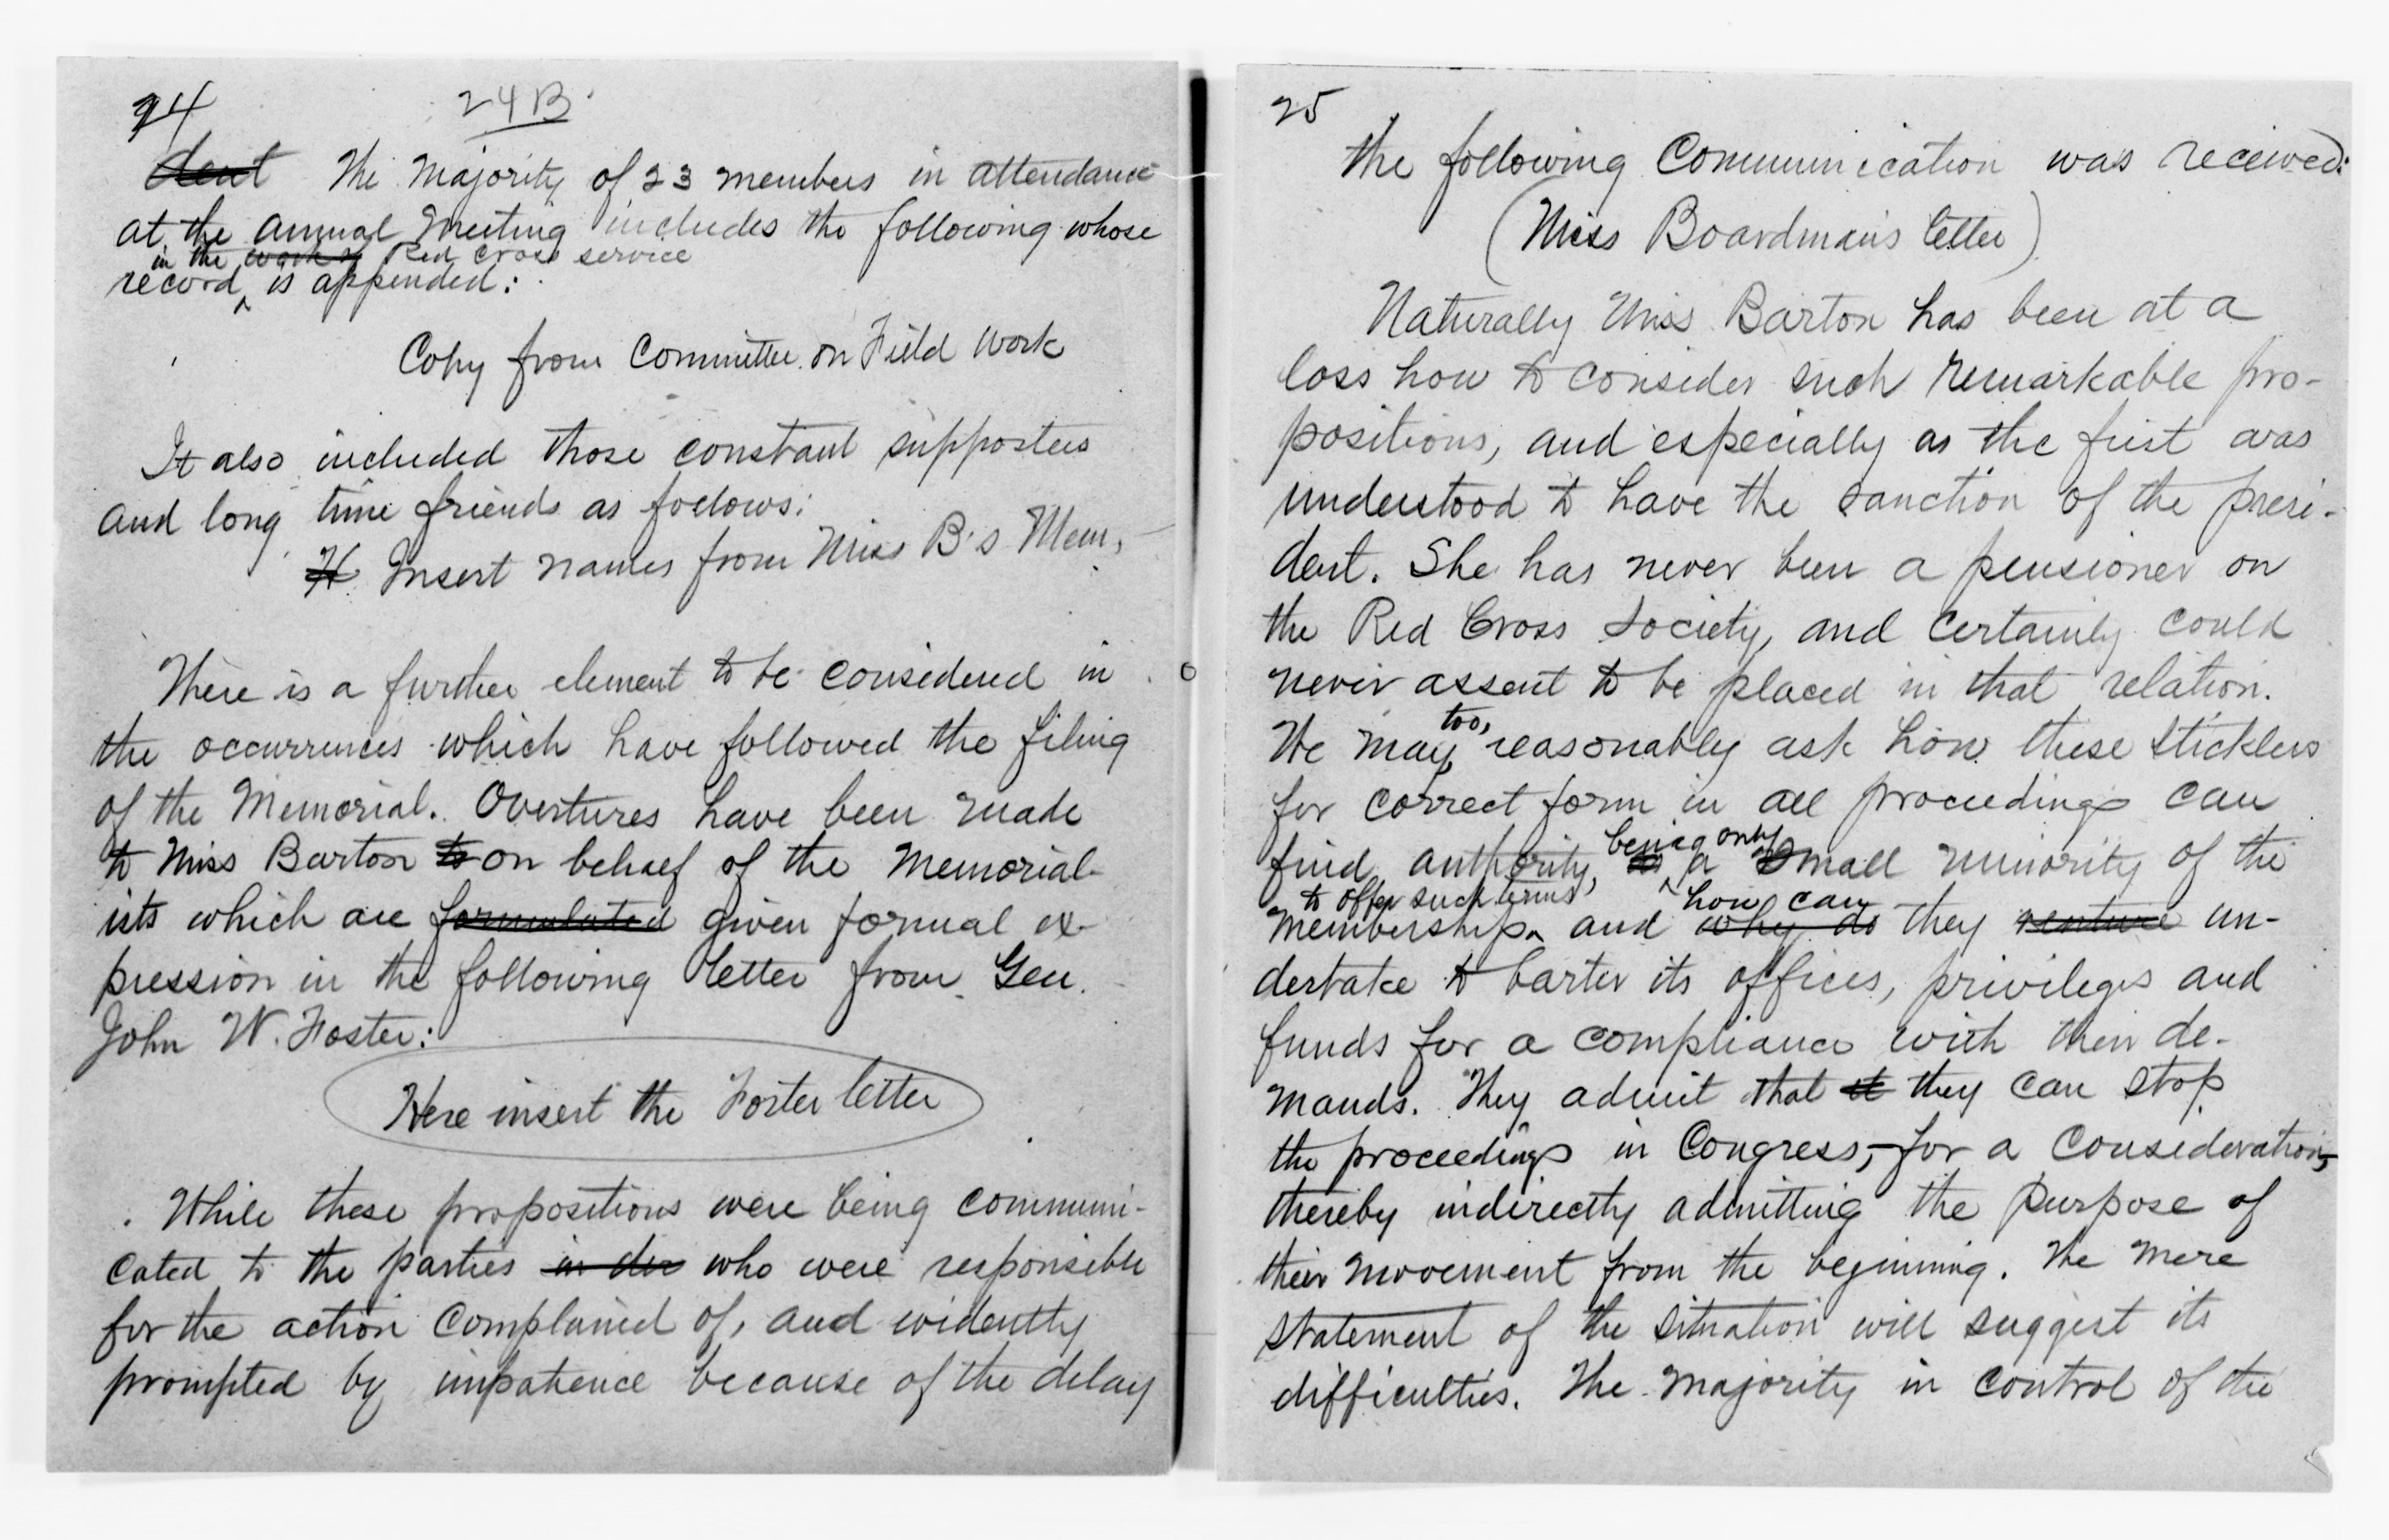 24
24B.
dent The Majority of 23 members in attendance
at the annual Meeting includes the following whose
in the work of Red Cross service
record ^ is appended:
Copy from Committee on Field Work
It also included those constant supporters
and long time friends as follows:
H. Insert names from Miss B's Mem.
There is a further element to be considered in
the occurrences which have followed the filing
of the Memorial. Overtures have been made
to Miss Barton to on behalf of the Memorial-
ists which are formulated given formal ex-
pression in the following letter from Gen.
John W. Foster:
Here insert the Foster letter
While these propositions were being communi-
cated to the parties in der who were responsible
for the action complained of, and evidently
prompted by impatience because of the delay
25
the following Communication was received:
(Miss Boardman's letter)
Naturally Miss Barton has been at a
loss how to consider such remarkable pro-
positions, and especially as the first was
understood to have the sanction of the presi-
dent. She has never been a pensioner on
the Red Cross Society, and certainly could
never assent to be placed in that relation.
too,
We may, reasonably ask how these sticklers
for correct form in all proceedings can
being only
find authority, as ^ a small minority of the
to offer such terms how can
membership ^ and why do they venture un-
dertake to barter its offices, privileges and
funds for a compliance with their de-
mands. They admit that it they can stop
the proceedings in Congress,-for a consideration,-
thereby indirectly admitting the purpose of
their movement from the beginning. The mere
statement of the situation will suggest its
difficulties. The Majority in control of the